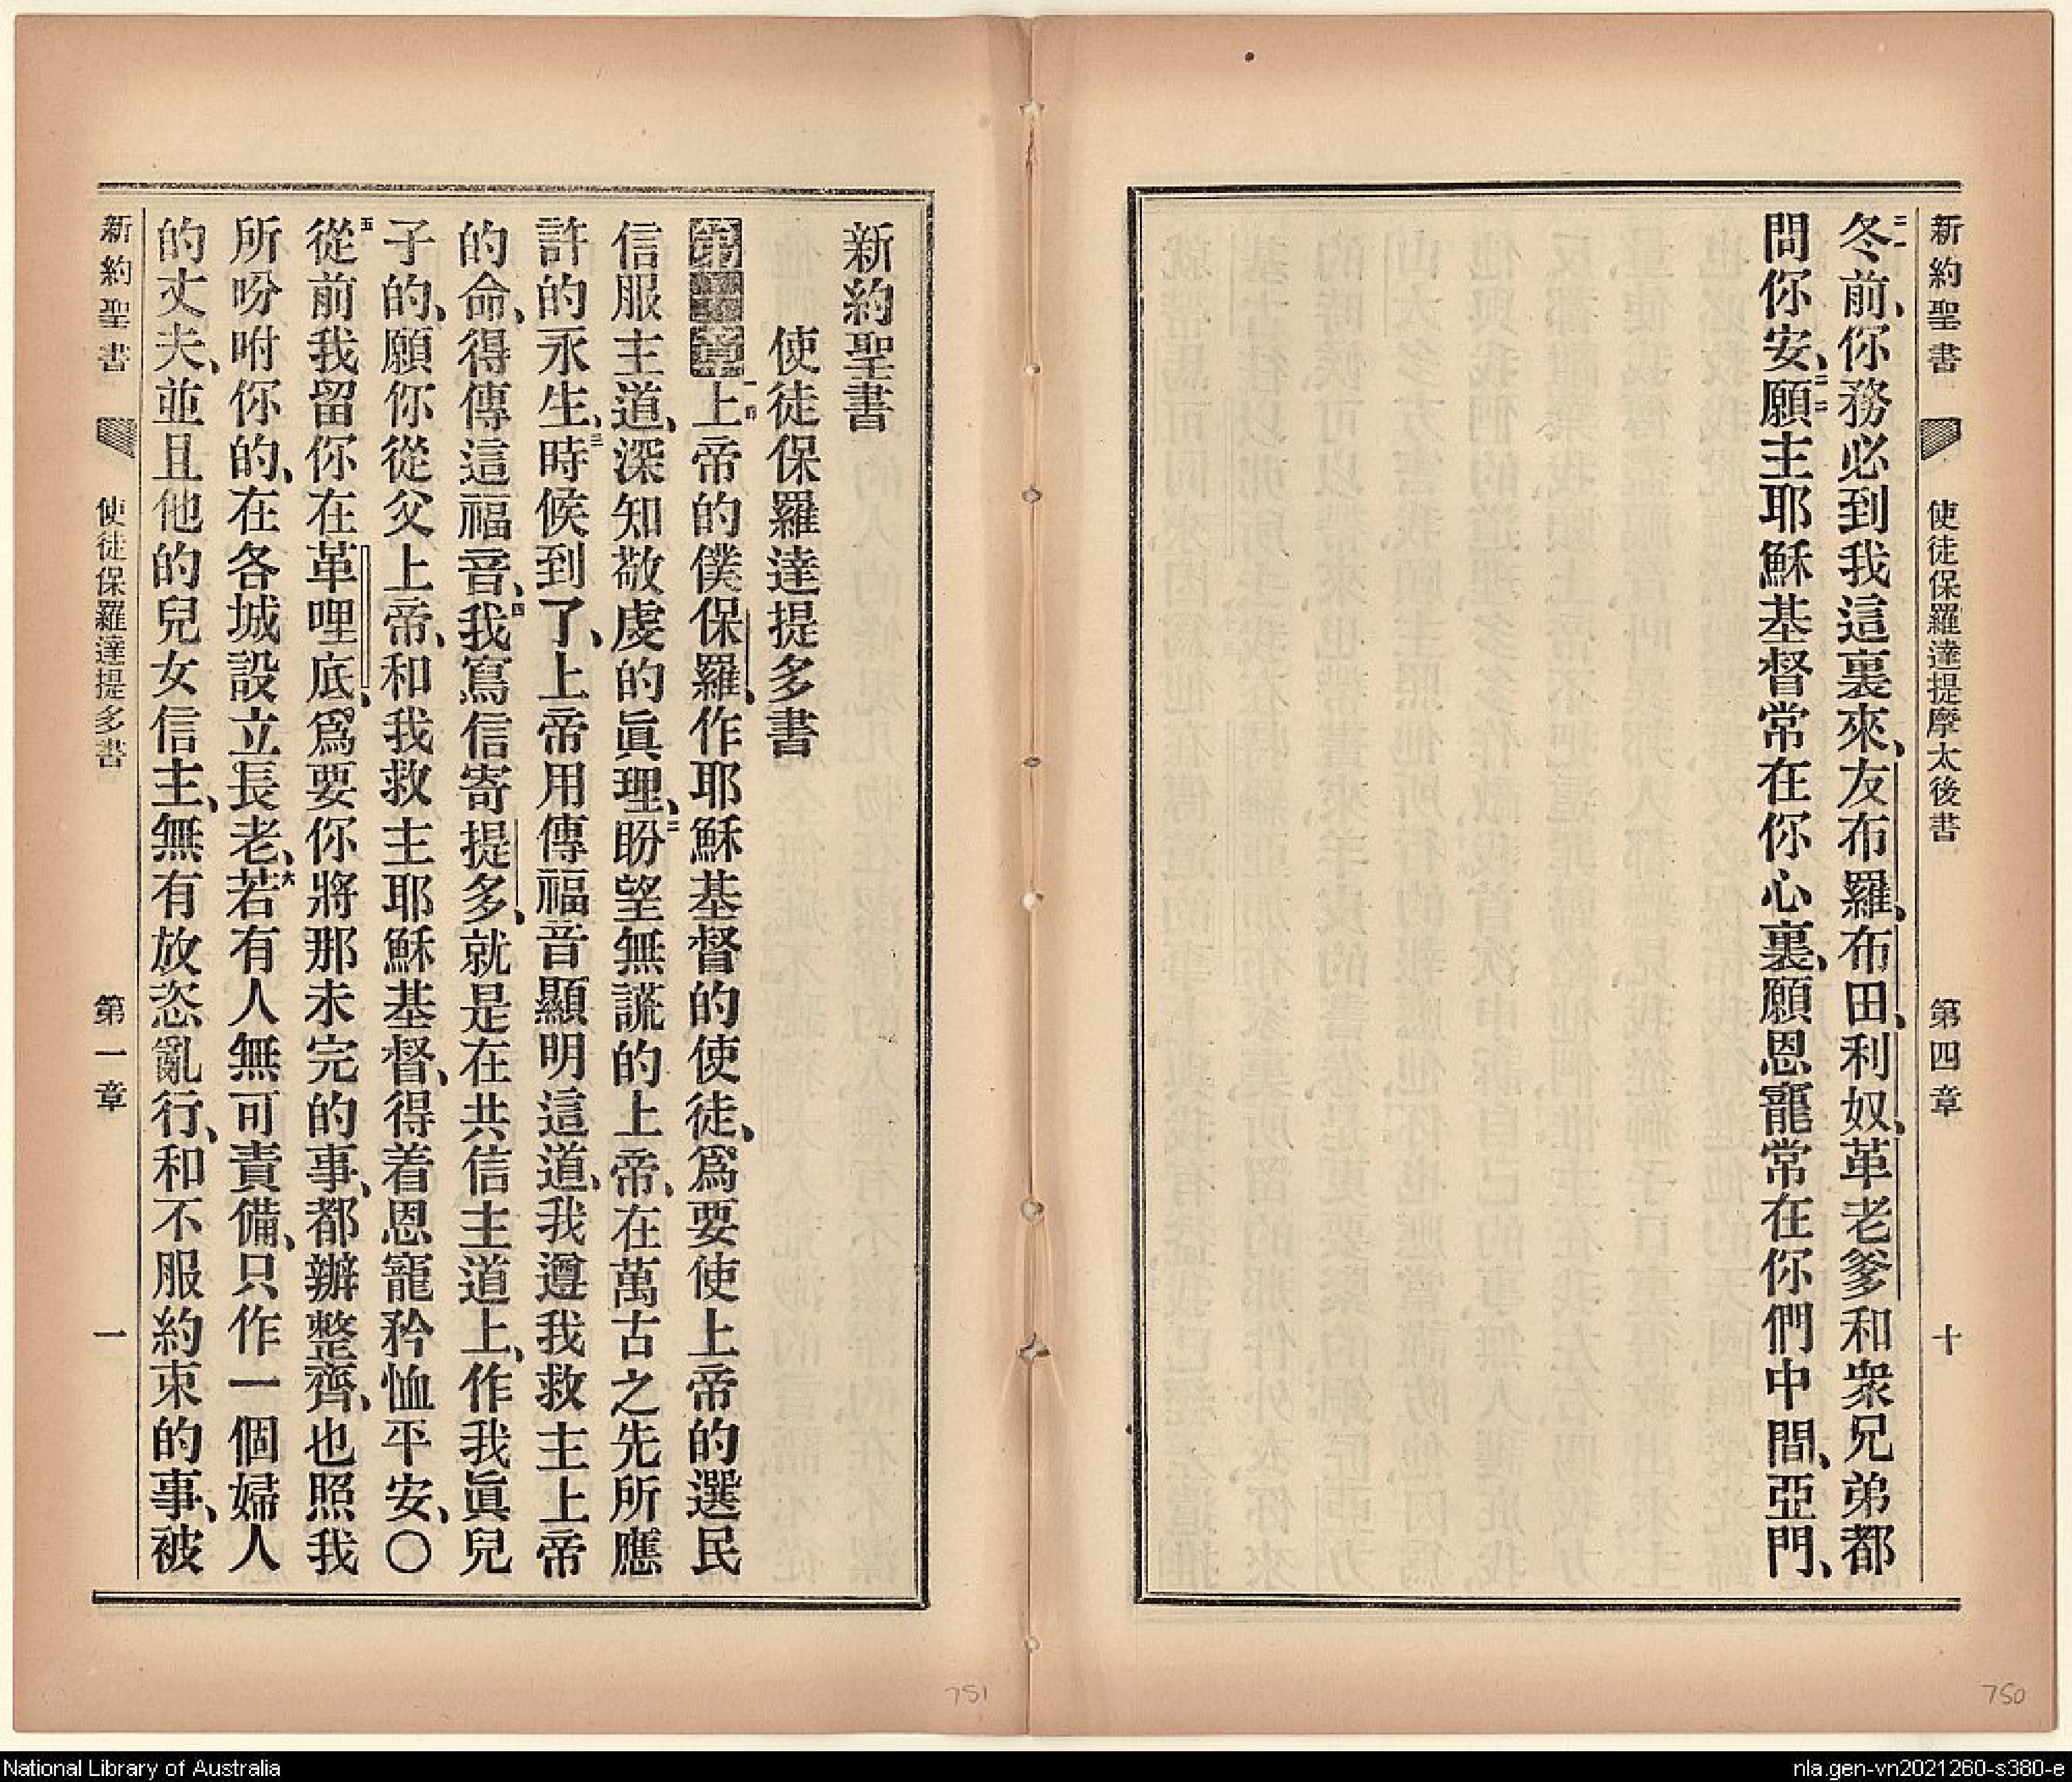 新約聖書 使徒保羅達提摩太後書 第四章 十
二一冬前、你務必到我這裏來、友布羅、布田、利奴、革老爹和衆兄弟都
問你安、二二願主耶穌基督常在你心裏、願恩寵常在你們中間、亞門、
新約聖書
使徒保羅達提多書
第一章一上帝的僕保羅、作耶穌基督的使徒、爲要使上帝的選民
信服主道、深知敬虔的眞理、二盼望無謊的上帝、在萬古之先所應
許的永生、三時候到了、上帝用傳福音顯明這道、我遵我救主上帝
的命、得傳這福音、四我寫信寄提多、就是在共信主道上、作我眞兒
子的、願你從父上帝、和我救主耶穌基督、得着恩寵矜恤平安、〇
五從前我留你在革哩底、爲要你將那未完的事、都辦整齊、也照我
所吩咐你的、在各城設立長老、六若有人無可責備、只作一個婦人
的丈夫、並且他的兒女信主、無有放恣亂行、和不服約束的事、被
新約聖書 使徒保羅達提多書 第一章 一
751
750
National Library of Australia
nla.gen-vn2021260-s380-e